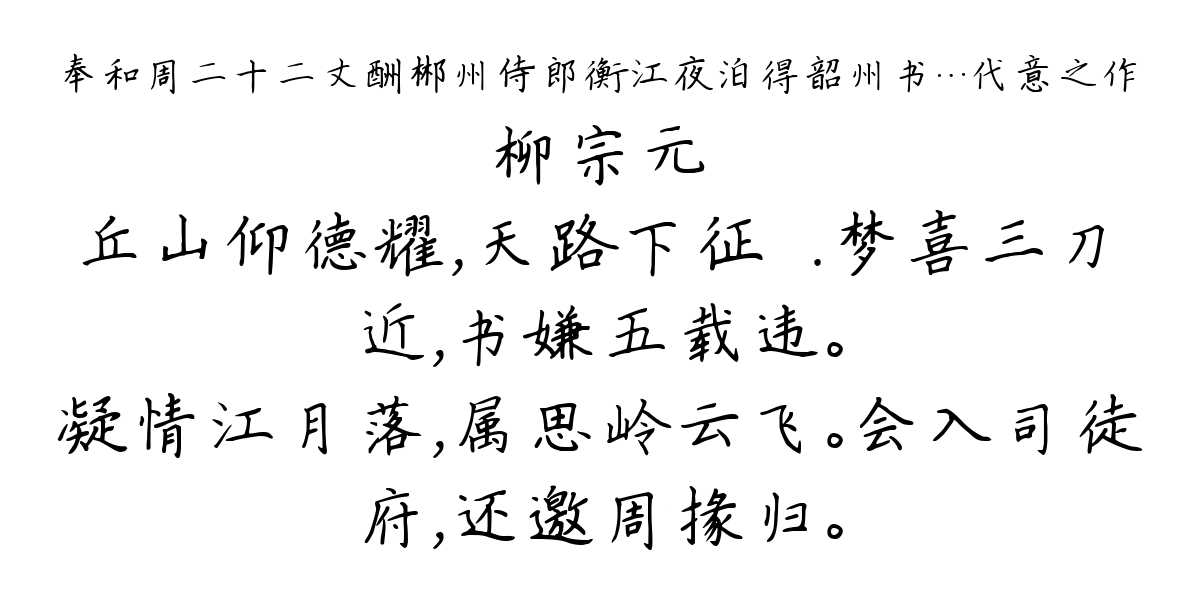 奉和周二十二丈酬郴州侍郎衡江夜泊得韶州书…代意之作
柳宗元
丘山仰德耀,天路下征 .梦喜三刀
近,书嫌五载违。
凝情江月落,属思岭云飞。会入司徒
府,还邀周掾归。